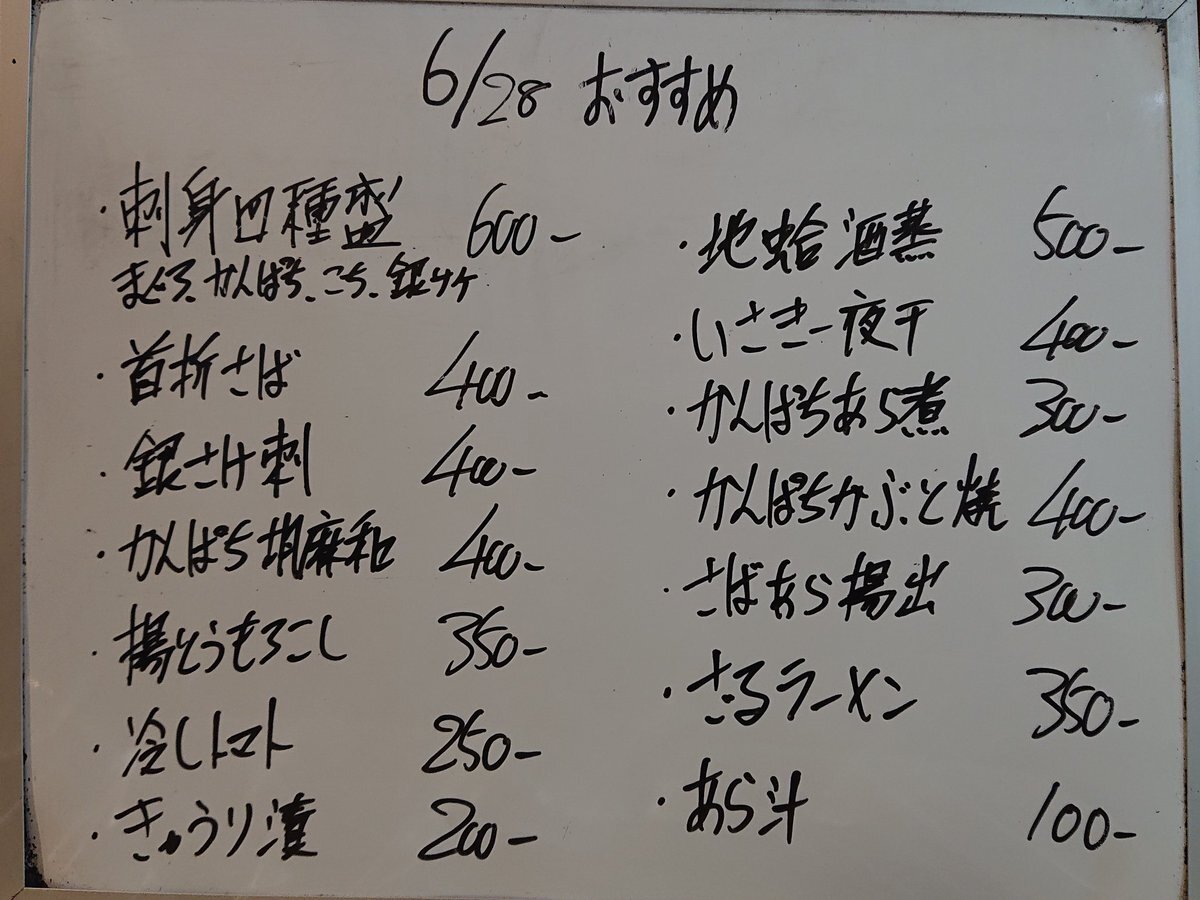 6/28 おすすめ
・刺身四種盛 600-
まぐろ、かんぱち、こち、銀サケ
・首折さば 400-
・銀さけ刺 400-
・かんぱち胡麻和 400-
・揚とうもろこし 350-
・冷しトマト 250-
・きゅうり漬 200-
・地蛤酒蒸 500-
・いさき一夜干 400-
・かんぱちあら煮 300-
・かんぱちかぶと焼 400-
・さばあら揚出 300-
・ざるラーメン 350-
・あら汁 100-